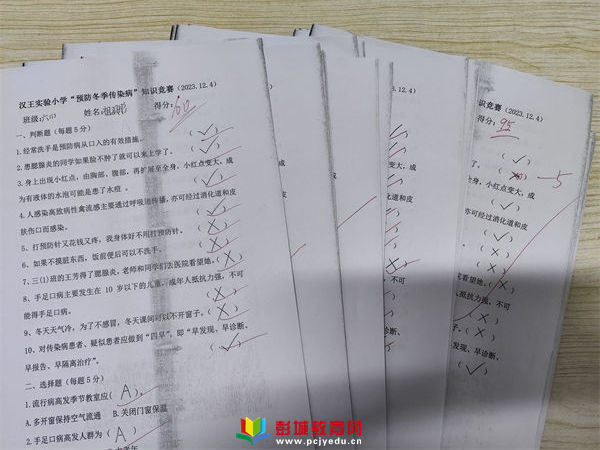 汉王实验小学“预防冬季传染病”知识竞赛（2023.12.4）
班级 姓名 得分：60
一、判断题（每题5分）
1.经常洗手是预防疾病从口入的有效措施。（✓）
2.患腮腺炎的同学如果脸不肿了就可以来上学了。（✓）
3.身上出现小红点，由胸部、腹部，再扩展至全身，小红点变大，成
为有液体的水泡可能是患了水痘。（✓）
4.人感染高致病性禽流感主要通过呼吸道传播，亦可经过消化道和皮
肤伤口而感染。（✓）
5、打预防针又花钱又疼，我身体好不用打预防针。（X）
6、如果不摸脏东西，饭前便后可以不洗手。（X）
7、三(1)班的王芳得了腮腺炎，老师和同学们去医院看望她。（X）
8、手足口病主要发生在 10 岁以下的儿童，成年人抵抗力强，不可
能得手足口病。（X）
9、冬天天气冷，为了不感冒，冬天课间可以不开窗子。（X）
10、对传染病患者、疑似患者应做到“四早”，即“早发现、早诊断、
早报告、早隔离治疗”。（✓）
二、选择题（每题5分）
1.流行病高发季节教室应（A）
A.多开窗保持空气流通 B.关闭门窗保温
2.手足口病高发人群为（A）
识竞赛（2023.12.4）
得分：95
（✓）
-5
小红点变大，成
（✓）
亦可经过消化道和皮
（✓）
（X）
（X）
看望她。（X）
抵抗力强，不可
（X）
子。（X）
发现、早诊断、
（✓）
彭城教育网
www.pcjyedu.cn